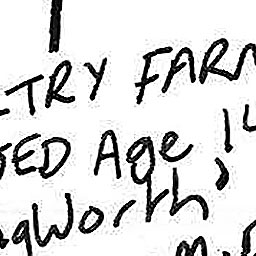 TRY FARM
ED Age 14
gWorth,